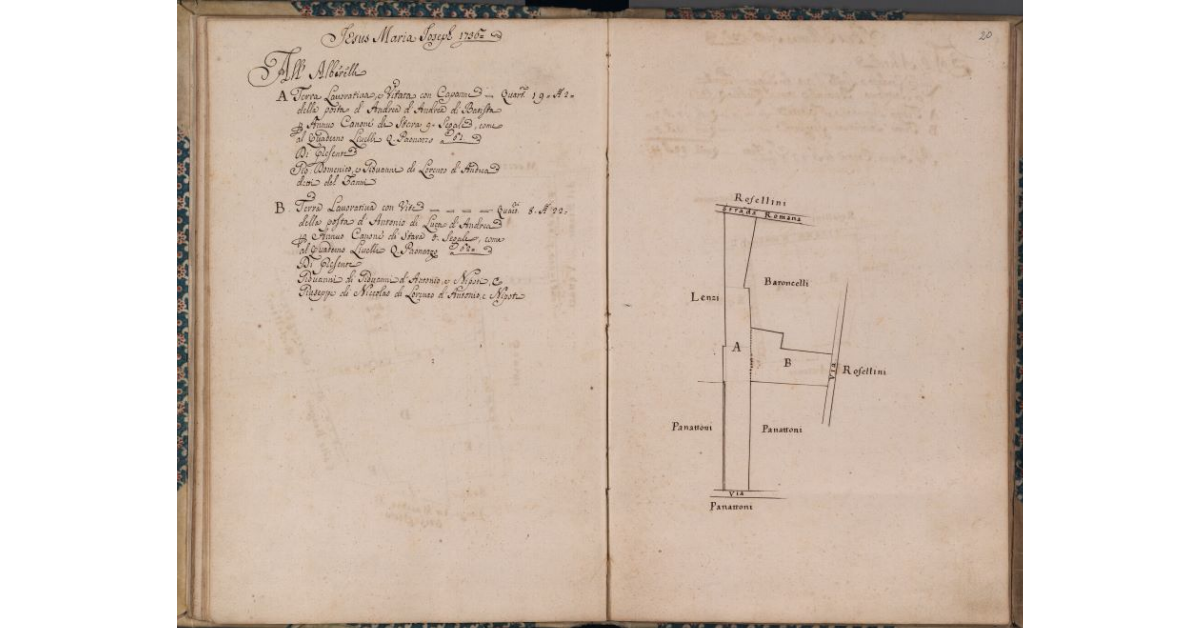 Jesus Maria Joseph 1736
All' Alberell
A Terra Lavorativa, e Vitata con Capann Quart. 19.
della posta d' Andrea d' Andrea di Batista
p Annuo Canone di Stara 9. Segale, come
al Quaderno Livelli Q. Paonazzo
Di presente
Domenico, e Giovanni di Lorenzo d' Andrea
detti del Nanni
B Terra Lavorativa con Vite Quart. 8. 22.
della posta d' Antonio di Luca d' Andrea
p Annuo Canone di Stara 6. Segale, come
al Quaderno Livelli Q. Paonazzo
Di presente
Giovanni di Giovanni d' Antonio, e Nipoti, e
Giuseppe di Niccolao di Lorenzo d' Antonio, e Nipoti
20
Rosellini
Strada Romana
Baroncelli
Lenzi
A
B
Via
Rosellini
Panattoni
Panattoni
Via
Panattoni